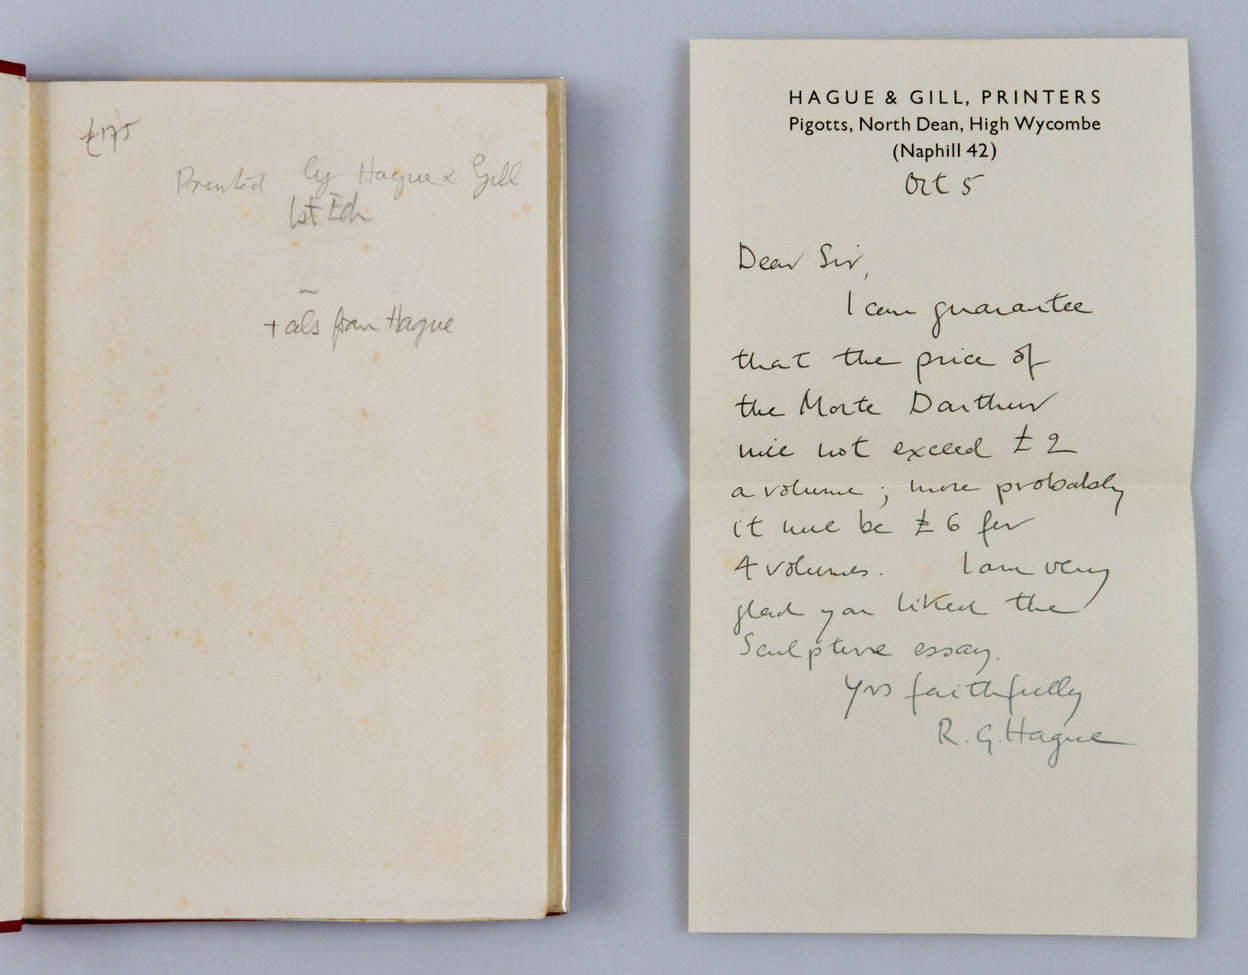 £175
Printed by Hague & Gill
1st Edn
+ als from Hague
HAGUE & GILL, PRINTERS
Pigotts, North Dean, High Wycombe
(Naphill 42)
Oct 5
Dear Sir,
I can guarantee
that the price of
the Morte Darthur
will not exceed £2
a volume; more probably
it will be £6 for
4 volumes. I am very
glad you liked the
Sculpture essay.
Yrs faithfully
R. G. Hague